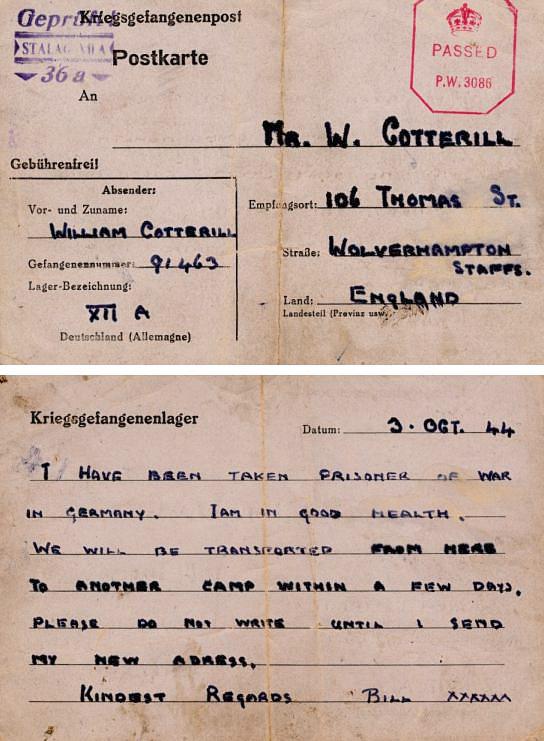 Geprüft
Kriegsgefangenenpost
STALAG XII A
36a
Postkarte
PASSED
P.W. 3086
An
MR. W. COTTERILL
Gebührenfrei!
Absender:
Vor- und Zuname:
WILLIAM COTTERILL
Gefangenennummer: 91463
Lager-Bezeichnung:
XII A
Deutschland (Allemagne)
Empfangsort: 106 THOMAS ST.
Straße: WOLVERHAMPTON
STAFFS.
Land: ENGLAND
Landesteil (Provinz usw.)
Kriegsgefangenenlager
Datum: 3. OCT. 44
I HAVE BEEN TAKEN PRISONER OF WAR
IN GERMANY. I AM IN GOOD HEALTH.
WE WILL BE TRANSPORTED FROM HERE
TO ANOTHER CAMP WITHIN A FEW DAYS.
PLEASE DO NOT WRITE UNTIL I SEND
MY NEW ADRESS.
KINDEST REGARDS BILL XXXXXX